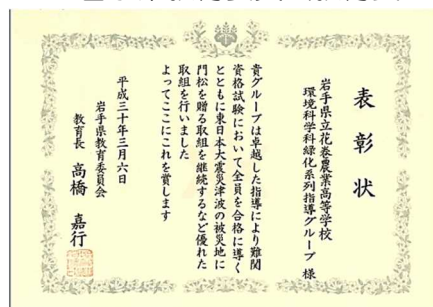 表彰状
岩手県立花巻農業高等学校
環境科学科緑化系列指導グループ 様
貴グループは卓越した指導により難関
資格試験において全員を合格に導く
とともに東日本大震災津波の被災地に
門松を贈る取組を継続するなど優れた
取組を行いました
よってここにこれを賞します
平成三十年三月六日
岩手県教育委員会
教育長 高橋 嘉行